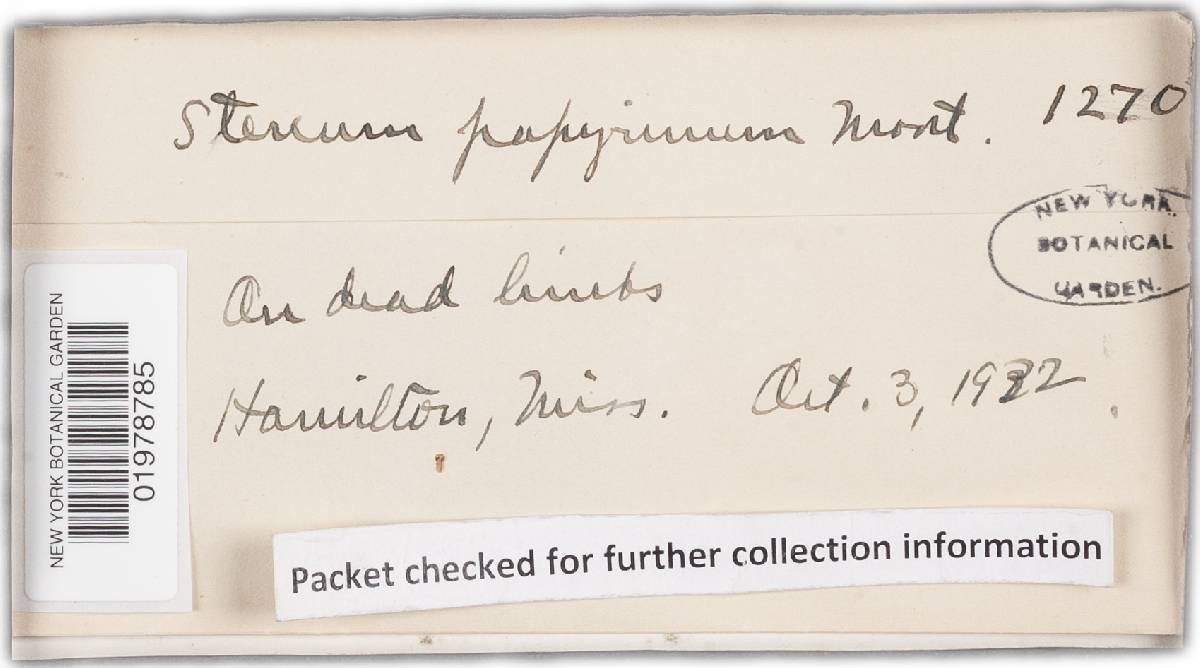 Stereum papyrinum Mont. 1270
NEW YORK
BOTANICAL
GARDEN.
On dead limbs
Hamilton, Miss. Oct. 3,
NEW YORK BOTANICAL GARDEN
01978785
Packet checked for further collection information